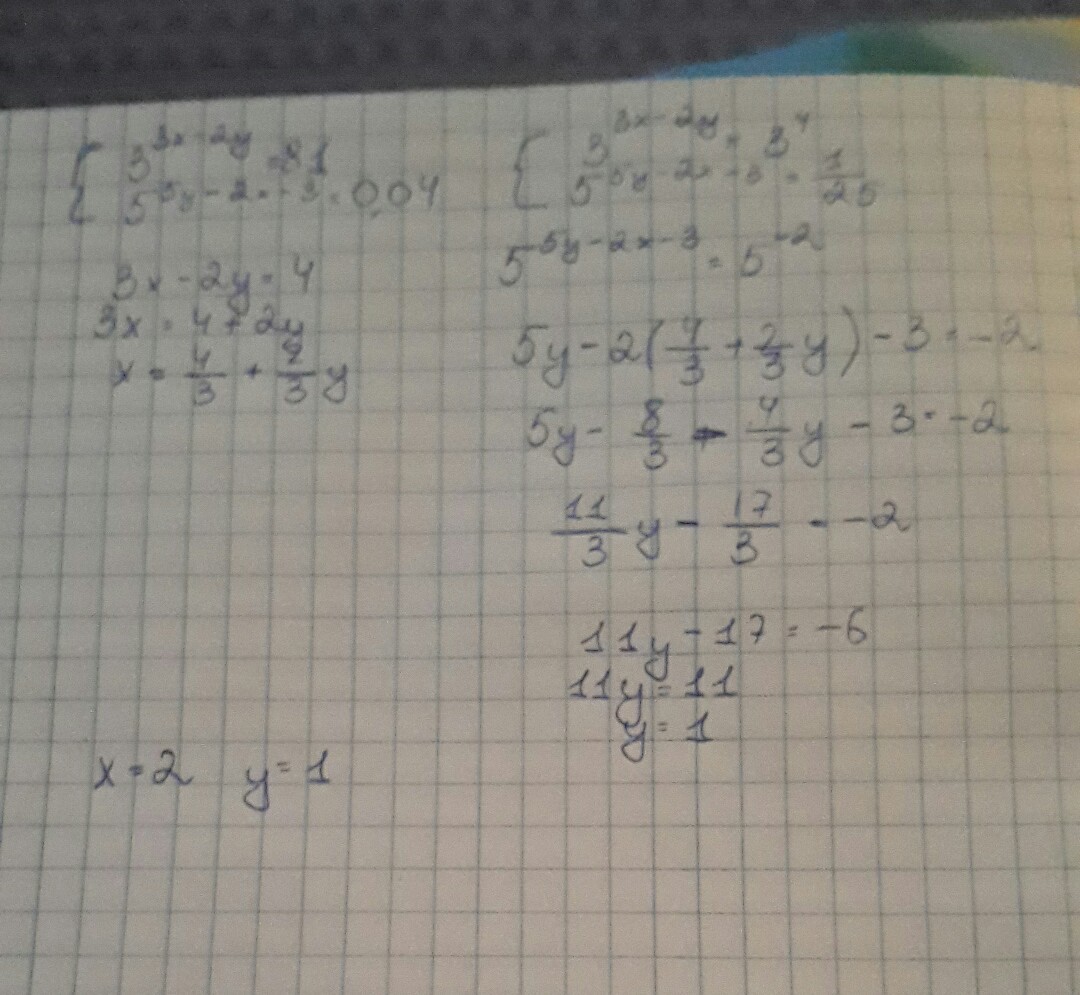 { 3^(3x-2y) = 81
5^(5y-2x-3) = 0,04
3x - 2y = 4
3x = 4 + 2y
x = 4/3 + 2/3 y
{ 3^(3x-2y) = 3^4
5^(5y-2x-3) = 1/25
5^(5y-2x-3) = 5^(-2)
5y - 2(4/3 + 2/3 y) - 3 = -2
5y - 8/3 - 4/3 y - 3 = -2
11/3 y - 17/3 = -2
11y - 17 = -6
11y = 11
y = 1
x = 2 y = 1